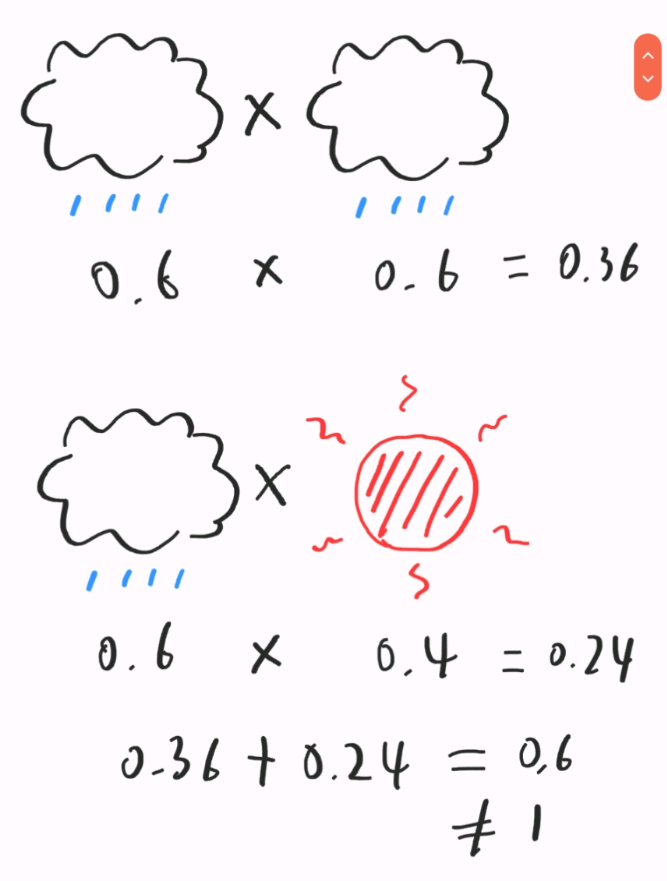 ×
0.6 × 0.6 = 0.36
×
0.6 × 0.4 = 0.24
0.36 + 0.24 = 0.6
≠ 1